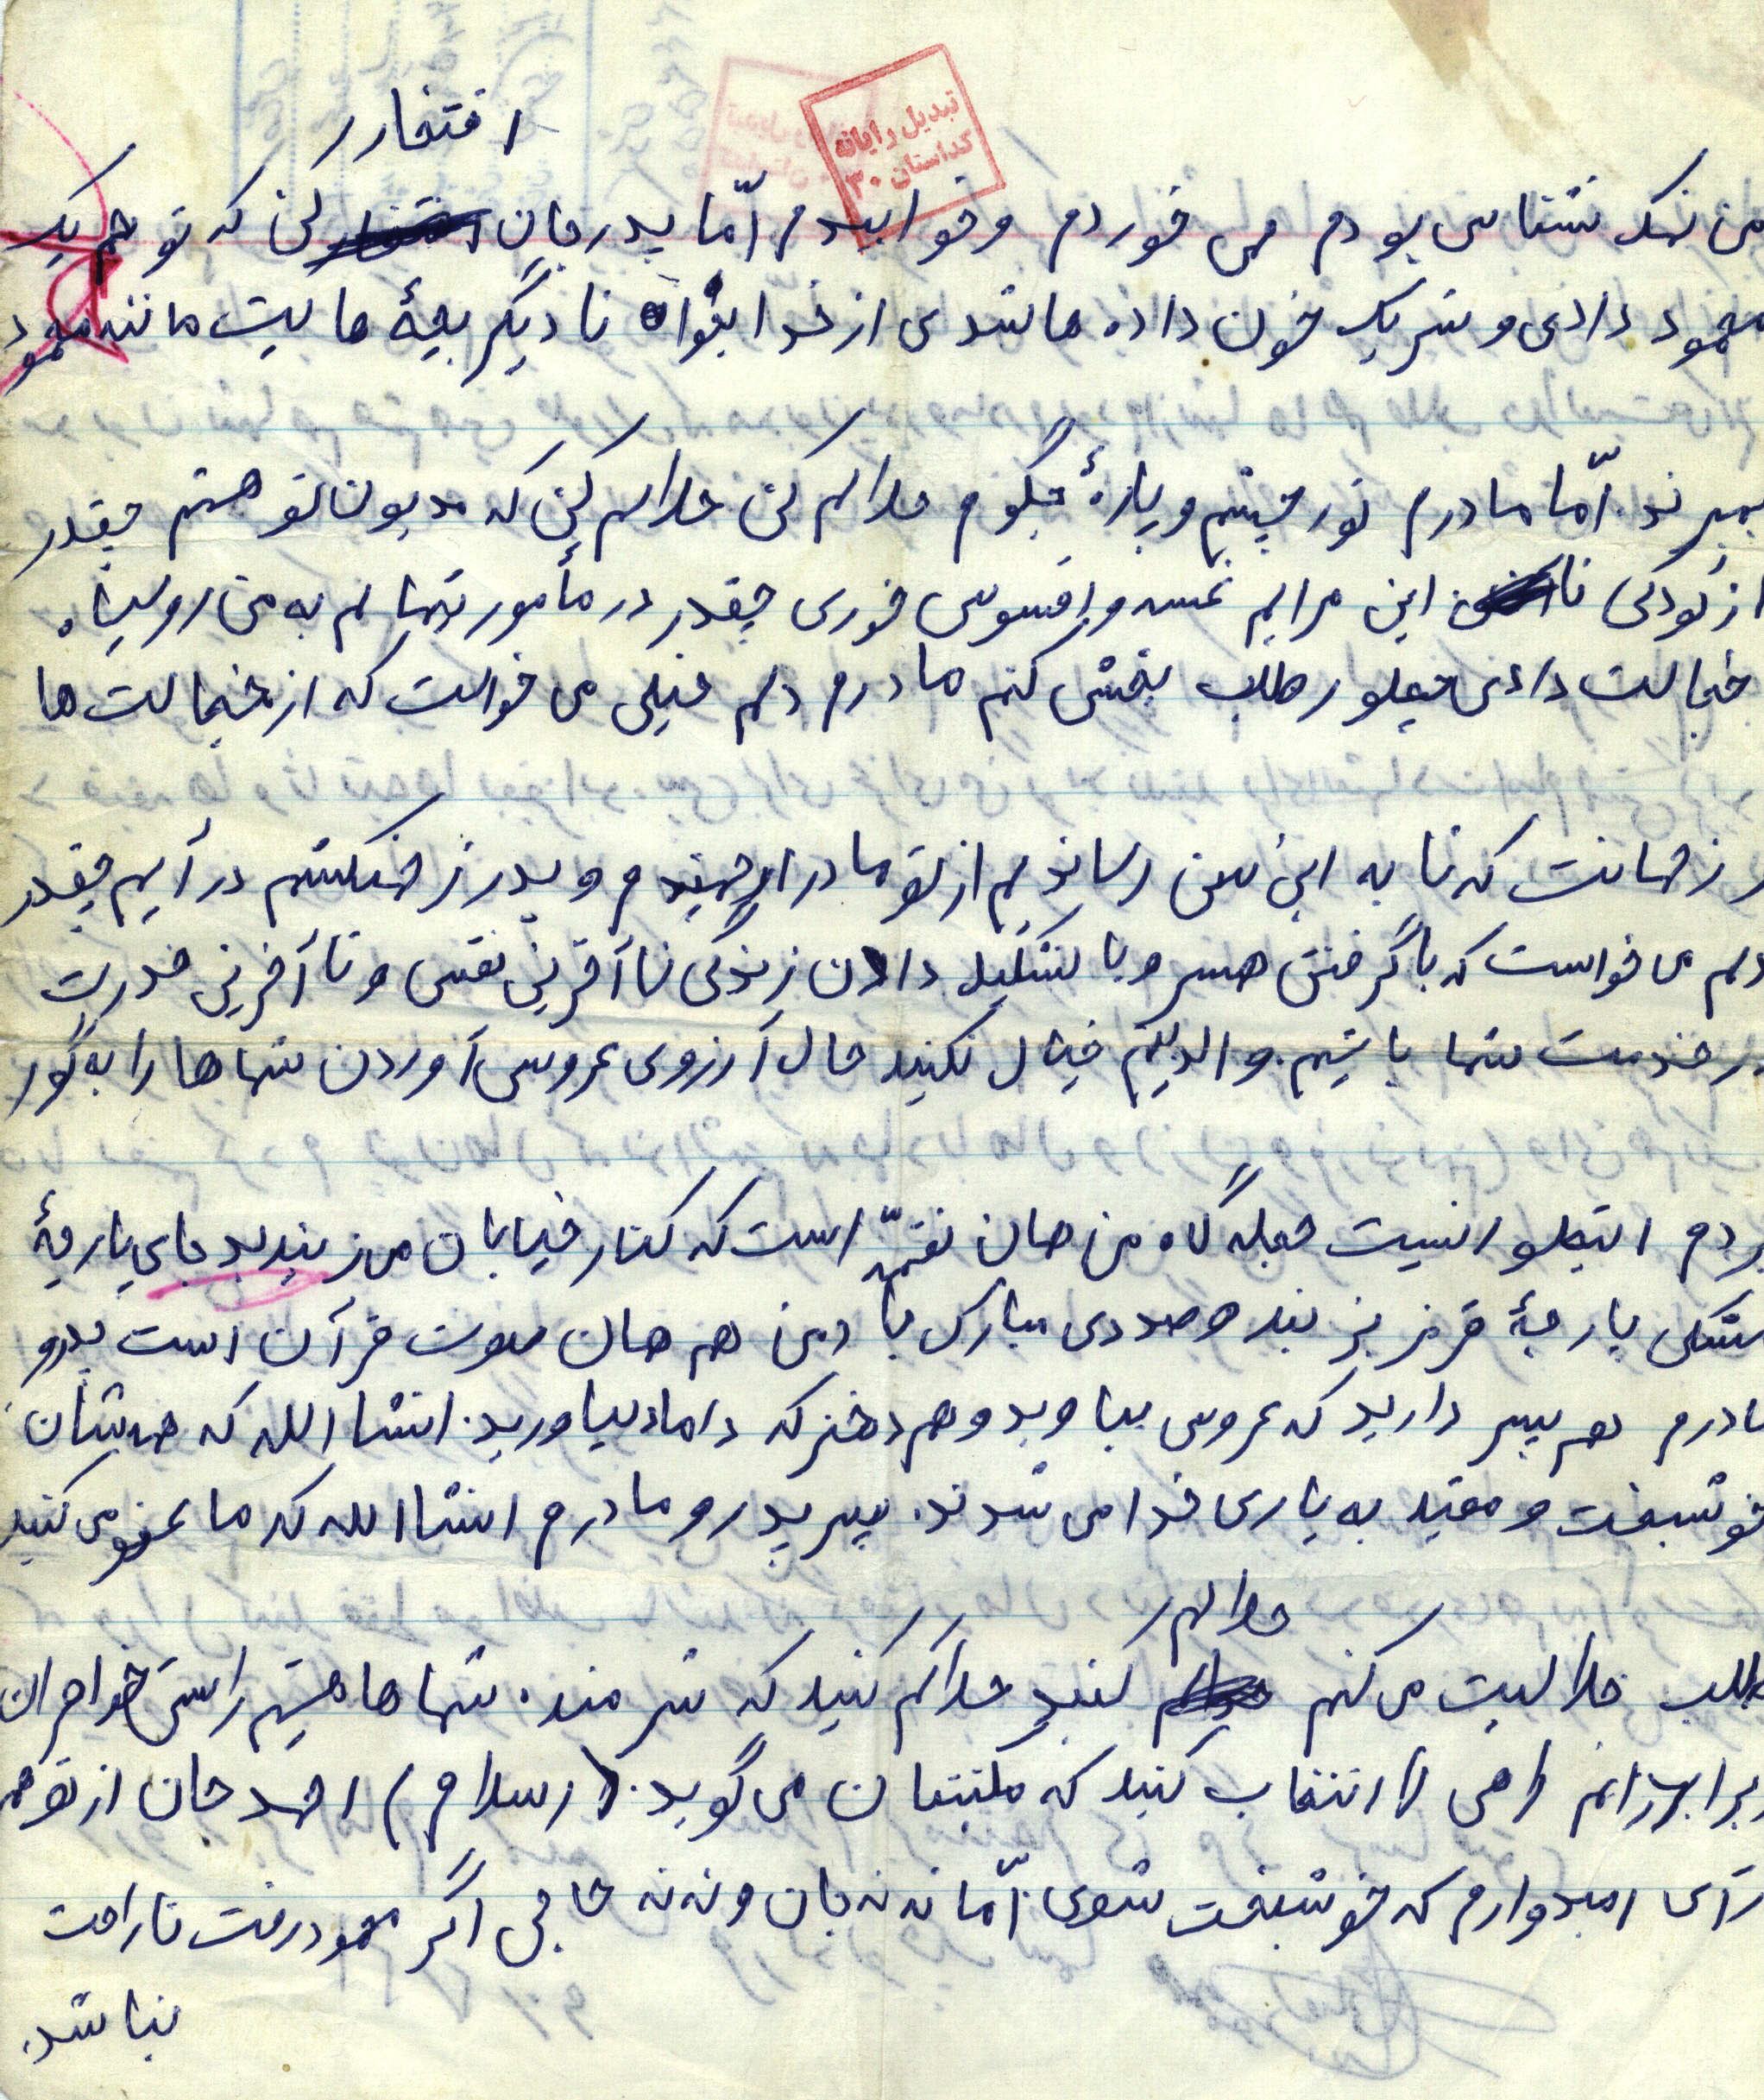 تبدیل رایانه
کداستان ۳۰
افتخار
من نمک نشناس بودم می خوردم و خوابیدم امّا پدرجان کن که تو هم یک
محمود دادی و شریک خون داده ها شدی از خدا بخواه تا دیگر بچهٔ هایت مانند محمود
بمیرند. امّا مادرم نور چشم و پارهٔ جگرم حلالم کن حلالم کن که مدیون تو هستم چقدر
از کودکی تا این مرا غصه و افسوس خوری چقدر در مأموریتهایم به من روسیاه
خجالت دادی چطور طلب بخشش کنم مادرم دلم خیلی می خواست که از خجالت ها
و زحمانت که تا به این سن رساندیم از تو مادر ارجمندم و پدر زحمتکشم در آیم چقدر
دلم می خواست که با گرفتن همسر و با تشکیل دادن زندگی تا آخرین نفس و تا آخرین قدرت
در خدمت شما باشم. والدینم خیال نکنید حال آرزوی عروس آوردن شماها را به گور
بردم اینطور نیست حجله گاه من همان است که کنار خیابان می زنید بجای پارچهٔ
مشکی پارچهٔ قرمز بزنید و صدای مبارک با دمن هم همان صوت قرآن است پدر و
مادرم هم پسر دارید که عروس بیاورید و هم دختر که داماد بیاورید. انشاالله که همه شان
خوشبخت و مقید به یاری خدا می شدند. پدر و مادرم انشاالله که ما عفو می کنید
حلالم
طلب حلالیت می کنم کنید حلالم کنید که شرمنده شماها هستم راستی خواهران
برادرانم راهی را انتخاب کنید که مکتبتان می گوید. (اسلام) احمد جان از تو هم
امیدوارم که خوشبخت شوی. امّا ننه جان و ننه حاجی اگر محمود رفت ناراحت
نباشد.